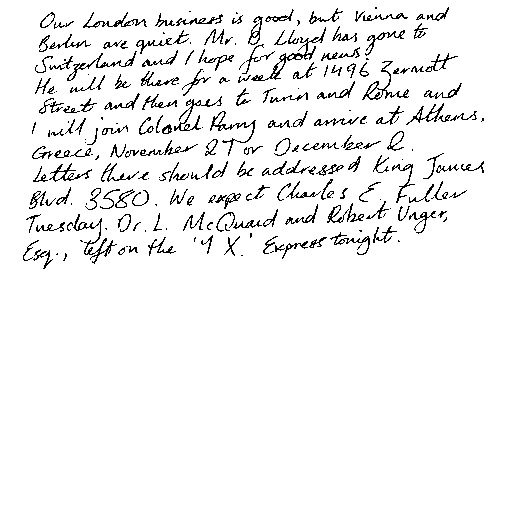 Our London business is good, but Vienna and
Berlin are quiet. Mr. D. Lloyd has gone to
Switzerland and I hope for good news.
He will be there for a week at 1496 Zermott
Street and then goes to Turin and Rome and
I will join Colonel Parry and arrive at Athens,
Greece, November 27 or December 2.
Letters there should be addressed King James
Blvd. 3580. We expect Charles E. Fuller
Tuesday. Dr. L. McQuaid and Robert Unger,
Esq., left on the 'Y X.' Express tonight.